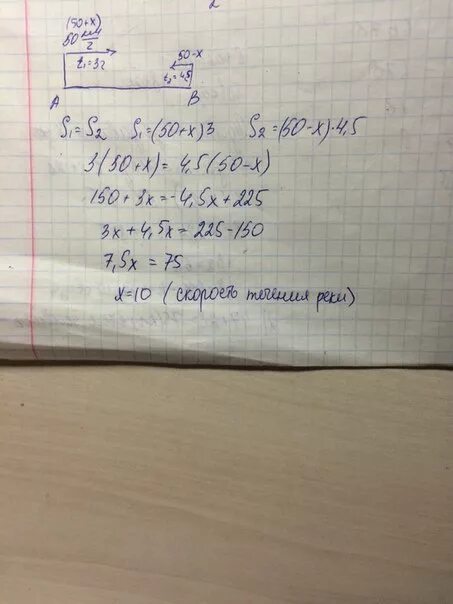 (50+x)
50 км/г
t₁=3г
50-x
t₂=4,5
A B
S₁=S₂ S₁=(50+x)3 S₂=(50-x)·4,5
3(50+x)=4,5(50-x)
150+3x=-4,5x+225
3x+4,5x=225-150
7,5x=75
x=10 (скорость течения реки)